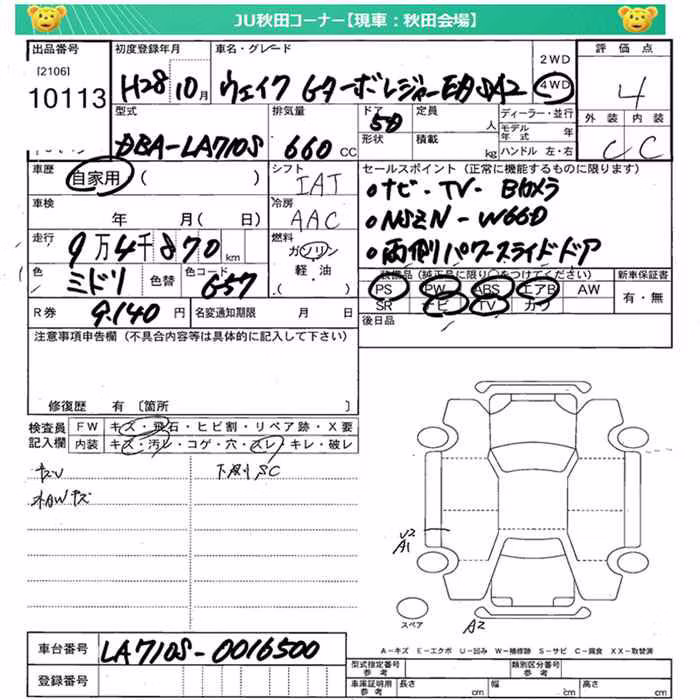 JU秋田コーナー【現車：秋田会場】
出品番号 初度登録年月 車名・グレード 2WD 評価点
[2106] 10113 H28 10月 ウェイク Gターボレジャー ED SA2 4WD 4
型式 排気量 ドア 定員 ディーラー・並行 外装 内装
DBA-LA710S 660CC 5D 人 モデル年式 年 C C
形状 積載 kg ハンドル 左・右
車歴 自家用 ( ) シフト IAT セールスポイント (正常に機能するものに限ります)
車検 年 月( 日) 冷房 AAC
●ナビ・TV・Bカメラ
●NSZN-W66D
●両側パワースライドドア
走行 9万4千870km 燃料 ガソリン
軽・油
( )
色 ミドリ 色替 色コード G57
装備品(純正品に限り○をつけてください) 新車保証書
PS PW ABS エアB AW 有・無
SR ナビ TV カワ
R券 9,140円 名変通知期限 月 日
後日品
注意事項申告欄 (不具合内容等は具体的に記入して下さい)
修復歴 有 〔箇所 〕
検査員記入欄 FW キズ・飛石・ヒビ割・リペア跡・X要
内装 キズ・汚レ・コゲ・穴・スレ・キレ・破レ
キズU 下廻りSC
木AWキズ
U2
A1
スペア
A2
A-キズ E-エクボ U-凹み W-補修跡 S-サビ C-腐食 XX-取替済
車台番号 LA710S-0016500
登録番号
型式指定番号 参考 類別区分番号 参考
車庫証明用 参考 長さ cm 幅 cm 高さ cm